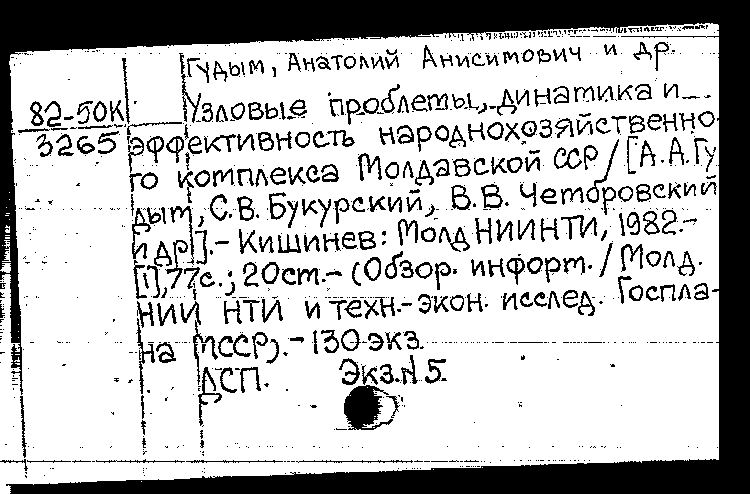 Гудым, Анатолий Анисимович и др.
82-50К Узловые проблемы, динамика и
3265 эффективность народнохозяйственно-
го комплекса Молдавской ССР / [А.А.Гу
дым, С.В. Букурский, В.В. Чембровский
и др]. - Кишинев: МолдНИИНТИ, 1982.-
[1], 77с.; 20см.- (Обзор. информ. / Молд.
НИИ НТИ и техн.-экон. исслед. Госпла-
на МССР). - 130 экз.
ДСП. Экз.N 5.